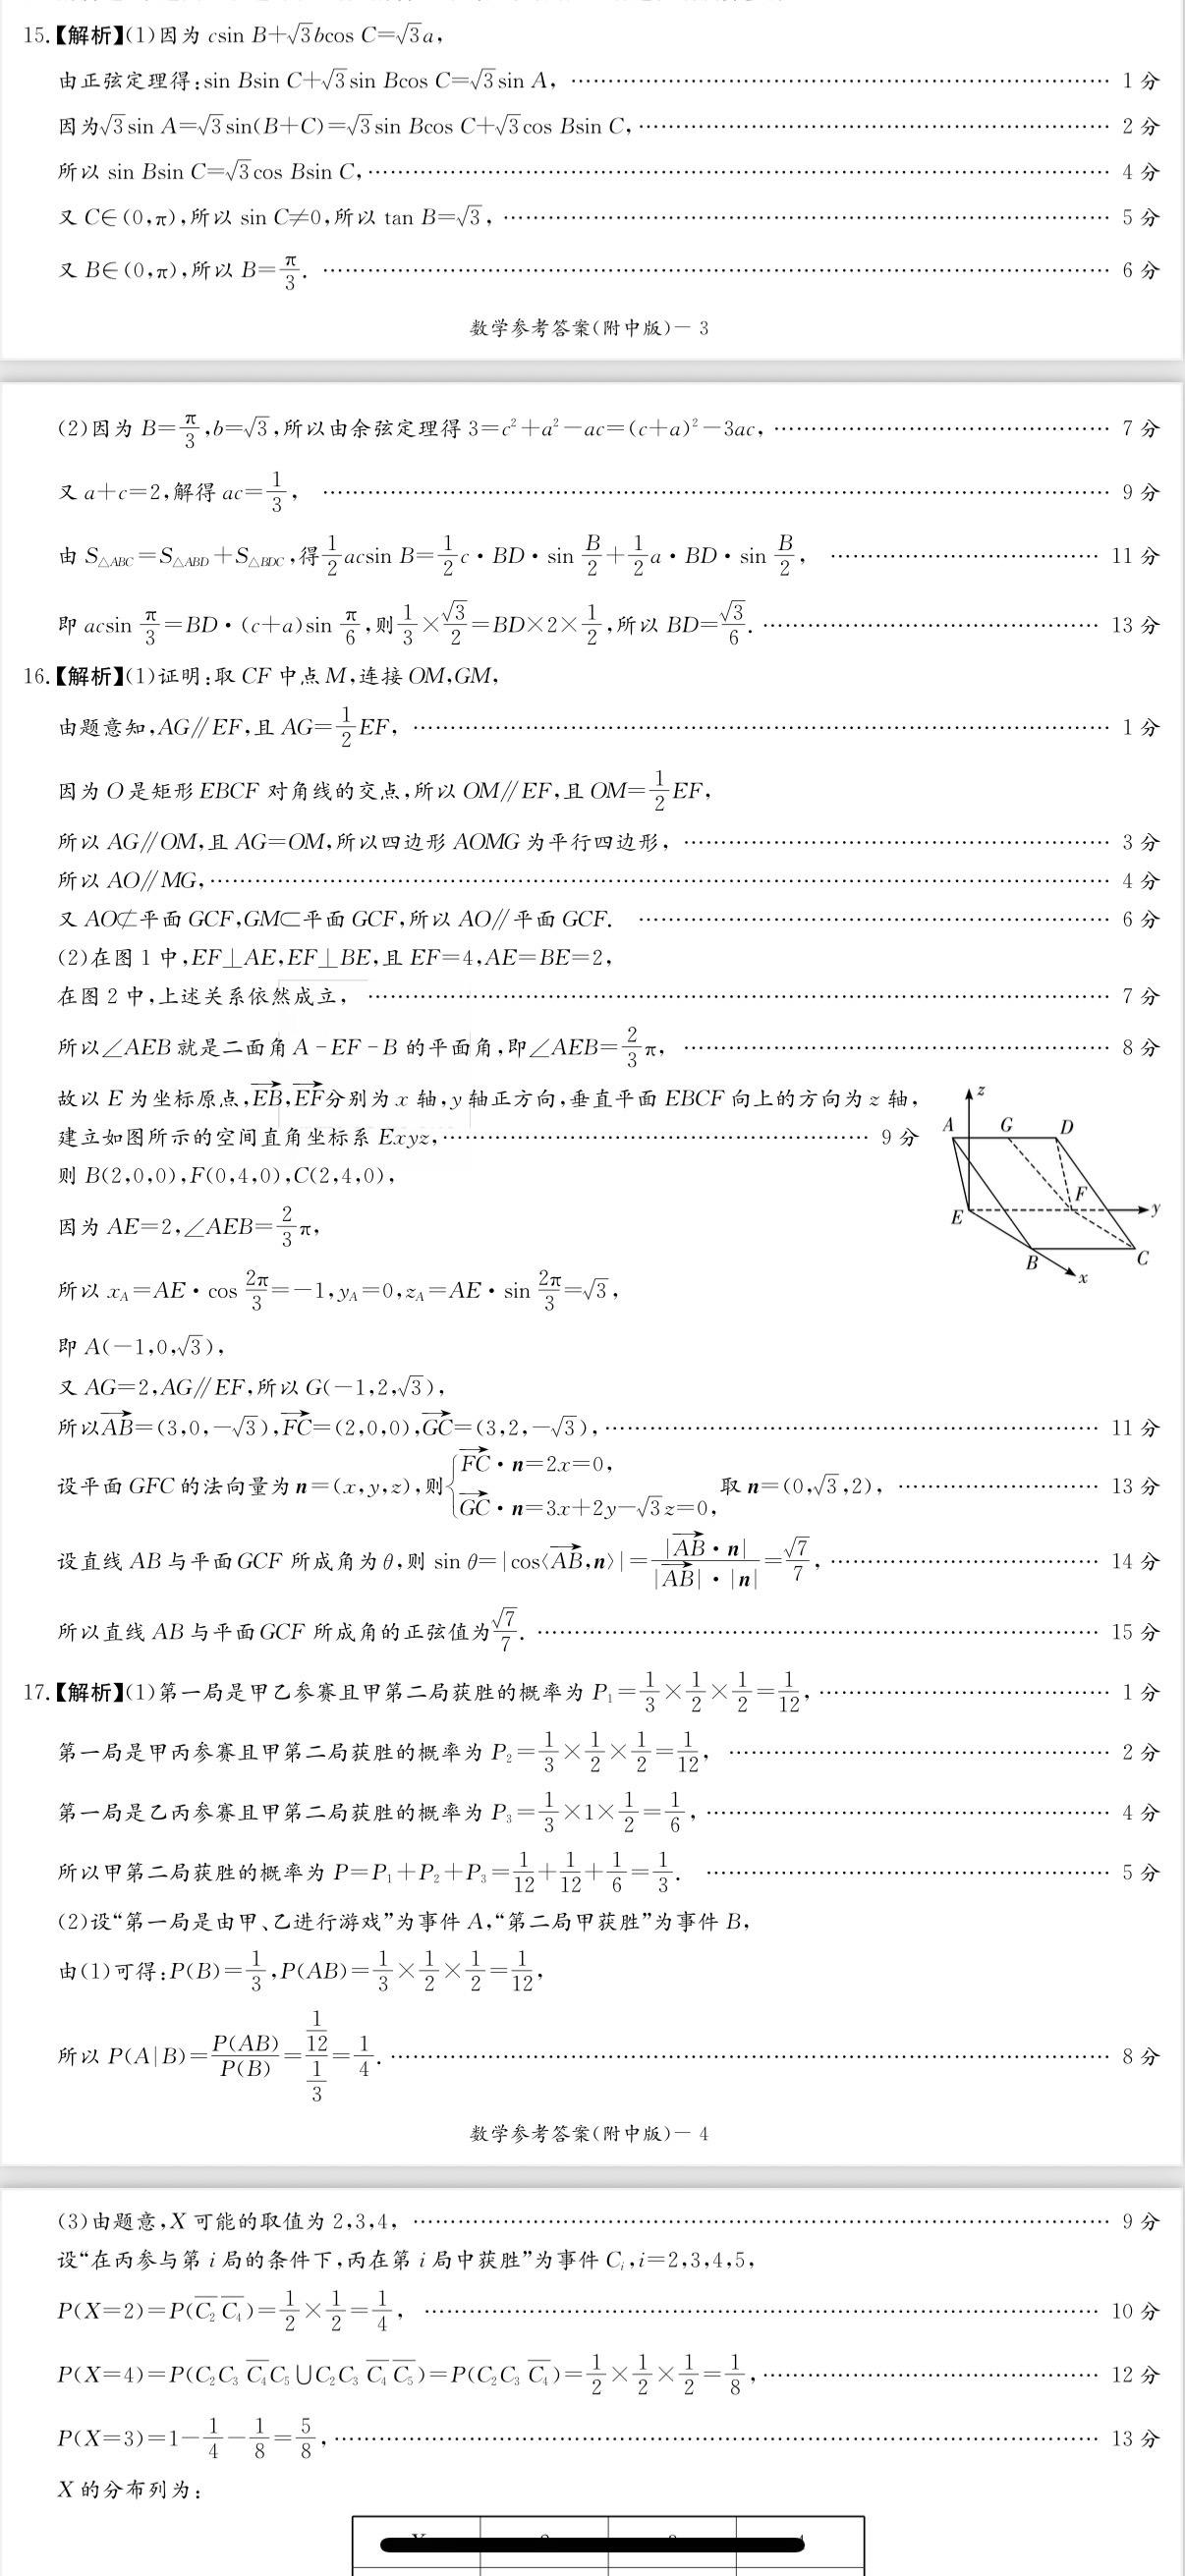 15.【解析】(1)因为 csin B+√3bcos C=√3a,
由正弦定理得:sin Bsin C+√3sin Bcos C=√3sin A, …… 1 分
因为√3sin A=√3sin(B+C)=√3sin Bcos C+√3cos Bsin C, …… 2 分
所以 sin Bsin C=√3cos Bsin C, …… 4 分
又 C∈(0,π),所以 sin C≠0,所以 tan B=√3, …… 5 分
又 B∈(0,π),所以 B=π/3. …… 6 分
数学参考答案(附中版)- 3
(2)因为 B=π/3,b=√3,所以由余弦定理得 3=c²+a²-ac=(c+a)²-3ac, …… 7 分
又 a+c=2,解得 ac=1/3, …… 9 分
由 S△ABC=S△ABD+S△BDC,得1/2acsin B=1/2c·BD·sin B/2+1/2a·BD·sin B/2, …… 11 分
即 acsin π/3=BD·(c+a)sin π/6,则1/3×√3/2=BD×2×1/2,所以 BD=√3/6. …… 13 分
16.【解析】(1)证明:取 CF 中点 M,连接 OM,GM,
由题意知,AG∥EF,且 AG=1/2EF, …… 1 分
因为 O 是矩形 EBCF 对角线的交点,所以 OM∥EF,且 OM=1/2EF,
所以 AG∥OM,且 AG=OM,所以四边形 AOMG 为平行四边形, …… 3 分
所以 AO∥MG, …… 4 分
又 AO⊄平面 GCF,GM⊂平面 GCF,所以 AO∥平面 GCF. …… 6 分
(2)在图 1 中,EF⊥AE,EF⊥BE,且 EF=4,AE=BE=2,
在图 2 中,上述关系依然成立, …… 7 分
所以∠AEB 就是二面角 A-EF-B 的平面角,即∠AEB=2/3π, …… 8 分
故以 E 为坐标原点,EB→,EF→分别为 x 轴,y 轴正方向,垂直平面 EBCF 向上的方向为 z 轴,
建立如图所示的空间直角坐标系 Exyz, …… 9 分
z
A G D
F
E
y
B
C
x
则 B(2,0,0),F(0,4,0),C(2,4,0),
因为 AE=2,∠AEB=2/3π,
所以 x_A=AE·cos 2π/3=-1,y_A=0,z_A=AE·sin 2π/3=√3,
即 A(-1,0,√3),
又 AG=2,AG∥EF,所以 G(-1,2,√3),
所以AB→=(3,0,-√3),FC→=(2,0,0),GC→=(3,2,-√3), …… 11 分
设平面 GFC 的法向量为 n=(x,y,z),则{FC→·n=2x=0, GC→·n=3x+2y-√3z=0, 取 n=(0,√3,2), …… 13 分
设直线 AB 与平面GCF 所成角为 θ,则 sin θ=|cos⟨AB→,n⟩|=|AB→·n|/|AB→|·|n|=√7/7, …… 14 分
所以直线 AB 与平面GCF 所成角的正弦值为√7/7. …… 15 分
17.【解析】(1)第一局是甲乙参赛且甲第二局获胜的概率为 P₁=1/3×1/2×1/2=1/12, …… 1 分
第一局是甲丙参赛且甲第二局获胜的概率为 P₂=1/3×1/2×1/2=1/12, …… 2 分
第一局是乙丙参赛且甲第二局获胜的概率为 P₃=1/3×1×1/2=1/6, …… 4 分
所以甲第二局获胜的概率为 P=P₁+P₂+P₃=1/12+1/12+1/6=1/3. …… 5 分
(2)设“第一局是由甲、乙进行游戏”为事件 A,“第二局甲获胜”为事件 B,
由(1)可得:P(B)=1/3,P(AB)=1/3×1/2×1/2=1/12,
所以 P(A|B)=P(AB)/P(B)=(1/12)/(1/3)=1/4. …… 8 分
数学参考答案(附中版)- 4
(3)由题意,X 可能的取值为 2,3,4, …… 9 分
设“在丙参与第 i 局的条件下,丙在第 i 局中获胜”为事件 Cᵢ,i=2,3,4,5,
P(X=2)=P(C̅₂C̅₄)=1/2×1/2=1/4, …… 10 分
P(X=4)=P(C₂C₃C̅₄C₅∪C₂C₃C̅₄C̅₅)=P(C₂C₃C̅₄)=1/2×1/2×1/2=1/8, …… 12 分
P(X=3)=1-1/4-1/8=5/8, …… 13 分
X 的分布列为: